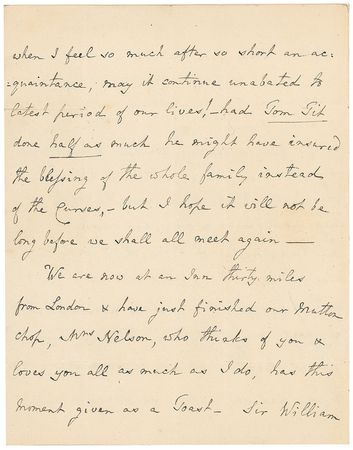 when I feel so much after so short an ac-
-quaintance; may it continue unabated to
latest period of our lives!—had Tom Tit
done half as much he might have insured
the blessing of the whole family instead
of the Curses,—but I hope it will not be
long before we shall all meet again —
We are now at an Inn thirty miles
from London & have just finished our Mutton
chop, Mrs Nelson, who thinks of you &
loves you all as much as I do, has this
moment given as a Toast— Sir William